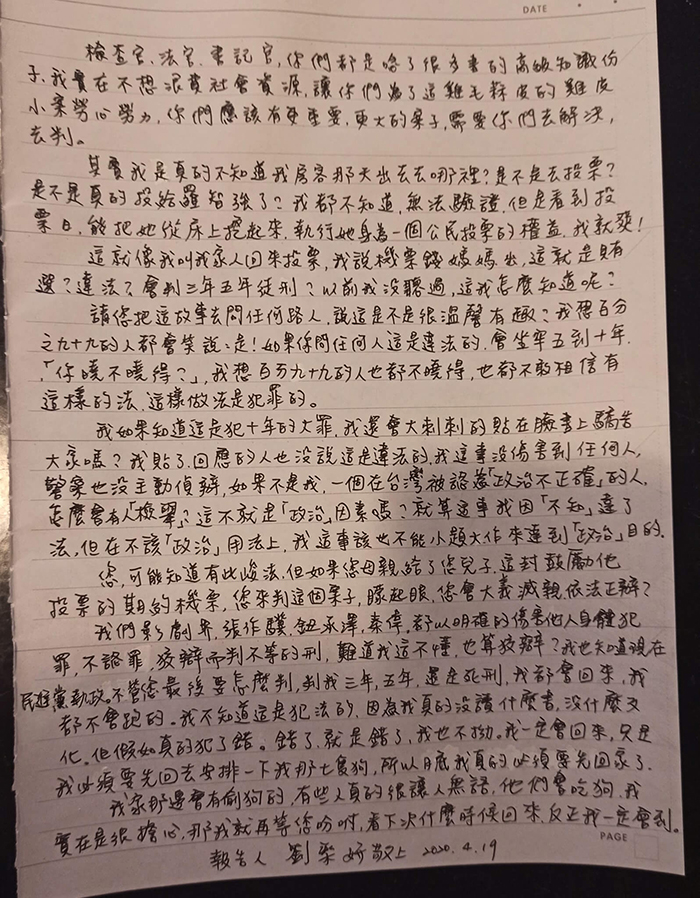 DATE
檢查官、法官、書記官，你們都是唸了很多書的高級知識份
子，我實在不想浪費社會資源，讓你們為了這雞毛蒜皮的雞皮
小案勞心勞力，你們應該有更重要，更大的案子，需要你們去解決，
去判。
其實我是真的不知道我房客那天出去去哪裡？是不是去投票？
是不是真的投給羅智強了？我都不知道，無法驗證，但是看到投
票日，能把她從床上挖起來，執行她身為一個公民投票的權益，我就爽！
這就像我叫我家人回來投票，我說機票錢媽媽出，這就是賄
選？違法？會判三年五年徒刑？以前我沒聽過，這我怎麼知道呢？
請您把這故事去問任何路人，說這是不是很溫馨有趣？我想百分
之九十九的人都會笑說：是！如果你問任何人這是違法的，會坐牢五到十年，
「你曉不曉得？」，我想百分九十九的人也都不曉得，也都不敢相信有
這樣的法，這樣做法是犯罪的。
我如果知道這是犯十年的大罪，我還會大剌剌的貼在臉書上驕告
大家嗎？我貼了，回應的人也沒說這是違法的，我這事沒傷害到任何人，
警察也沒主動偵辦，如果不是我，一個在台灣被認為「政治不正確」的人，
怎麼會有人「檢舉」？這不就是「政治」因素嗎？就算這事我因「不知」違了
法，但在不該「政治」用法上，我這事該也不能小題大作來達到「政治」目的。
您，可能知道有此此法，但如果您母親給了您兒子，這封鼓勵他
投票的期約機票，您來判這個案子，朦起眼，您會大義滅親依法正辦？
我們影劇界，張作驥、鈕承澤、秦偉，都以明確的傷害他人身體犯
罪，不認罪，狡辯而判不等的刑，難道我這不懂，也算狡辯？我也知道現在
民進黨執政。不管您最後要怎麼判，判我三年，五年，還是死刑，我都會回來，我
都不會跑的。我不知道這是犯法的，因為我真的沒讀什麼書，沒什麼文
化。但假如真的犯了錯。錯了，就是錯了，我也不拗。我一定會回來，只是
我必須要先回去安排一下我那七隻狗，所以月底我真的必須要先回家了。
我家那邊會有偷狗的，有些人真的很讓人無語，他們會吃狗，我
實在是很擔心，那我就再等您吩咐，看下次什麼時候回來，反正我一定會到。
報告人 劉樂妍敬上 2020.4.19
PAGE